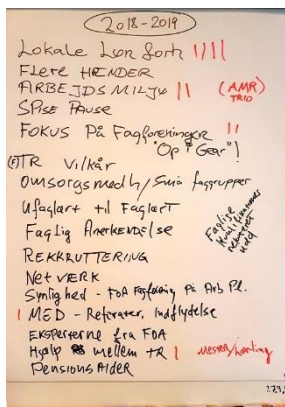 2018-2019
Lokale Løn forh
Flere HÆNDER
ARBEJDSMILJØ (AMR)
TRIO
SPISE PAUSE
FOKUS På Fagforeningen
"Op i Gear"!
(F)TR Vilkår
Omsorgsmedh/Små faggrupper
Ufaglært til Faglært
Faglig Anerkendelse
Faglige
Kvalifikationer
udd
REKRUTTERING
NetVÆRK
Synlighed - FOA Fagforening På Arb Pl.
MED - Referater, Indflydelse
EKSperterne fra FOA
Hjælp mellem TR
PensionsAlder